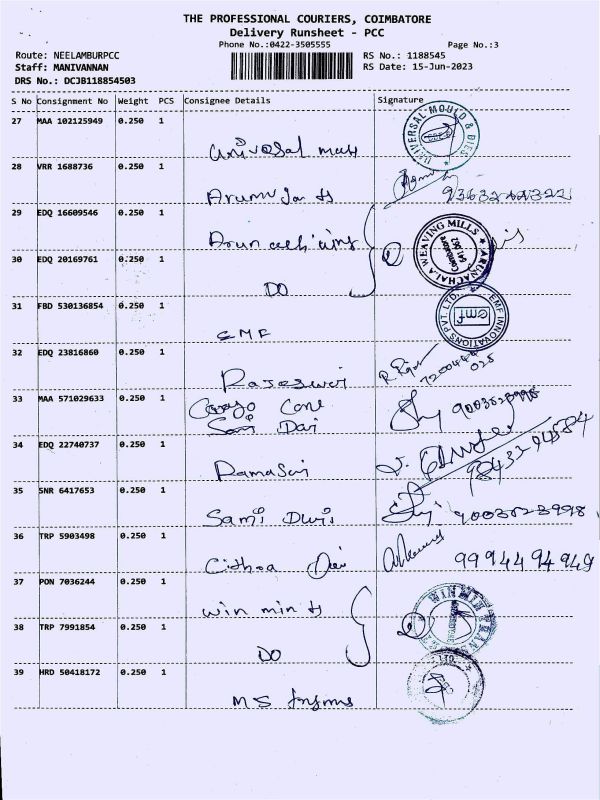 THE PROFESSIONAL COURIERS, COIMBATORE
Delivery Runsheet - PCC
Phone No.:0422-3505555
Page No.:3
Route: NEELAMBURPCC
RS No.: 1188545
Staff: MANIVANNAN
RS Date: 15-Jun-2023
DRS No.: DCJB118854503
S No Consignment No Weight PCS Consignee Details Signature
27 MAA 102125949 0.250 1
universal
UNIVERSAL MOULD & DIES
28 VRR 1688736 0.250 1
29 EDQ 16609546 0.250 1
Arun
ARUNACHALA WEAVING MILLS
Coimbatore
641 062
30 EDQ 20169761 0.250 1
DO
2
31 FBD 530136854 0.250 1
EMF
EMF INNOVATIONS PVT. LTD.
emf
32 EDQ 23816860 0.250 1
7200444
025
33 MAA 571029633 0.250 1
Cargo Care
34 EDQ 22740737 0.250 1
Ramasai
98432 04584
35 SNR 6417653 0.250 1
Sami
36 TRP 5903498 0.250 1
99944 94949
37 PON 7036244 0.250 1
win mints
38 TRP 7991854 0.250 1
DO
2
39 HRD 50418172 0.250 1
MS